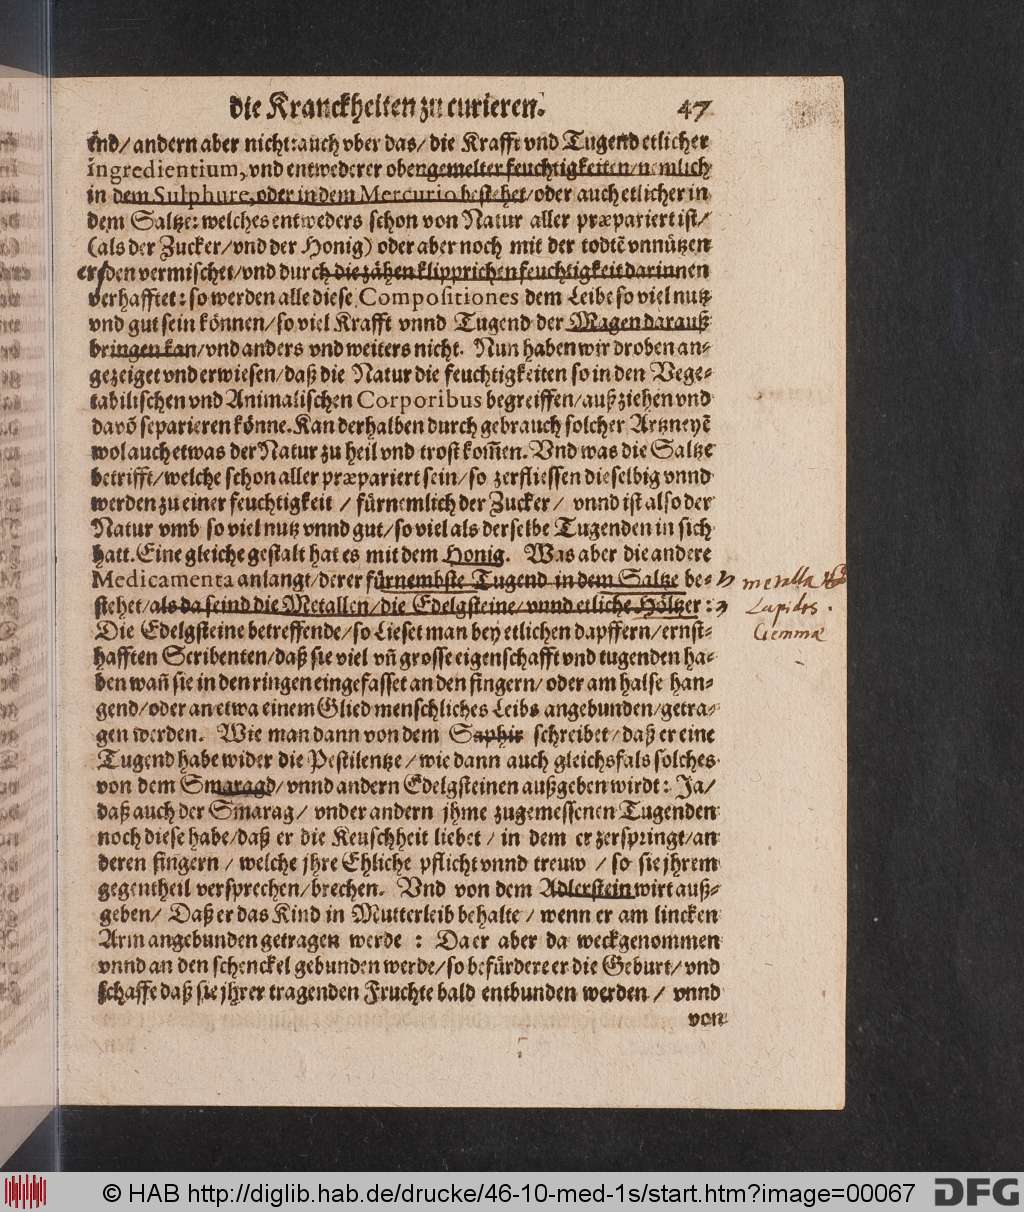 die Kranckheiten zu curieren. 47
sind/ andern aber nicht: auch vber das/ die Krafft vnd Tugend etlicher
ingredientium, vnd entwederer obengemelter feuchtigkeiten/ nemlich
in dem Sulphure, oder in dem Mercurio bestehet/ oder auch etlicher in
dem Saltze: welches entweders schon von Natur aller præpariert ist/
(als der Zucker/ vnd der Honig) oder aber noch mit der todtē vnnützen
erden vermischet/ vnd durch die zähen klipprichen feuchtigkeit darinnen
verhafftet: so werden alle diese Compositiones dem Leibe so viel nutz
vnd gut sein können/ so viel Krafft vnnd Tugend der Magen darauß
bringen kan/ vnd anders vnd weiters nicht. Nun haben wir droben an-
gezeiget vnd erwiesen/ daß die Natur die feuchtigkeiten so in den Vege-
tabilischen vnd Animalischen Corporibus begreiffen/ außziehen vnd
davō separieren könne. Kan derhalben durch gebrauch solcher Artzneyē
wol auch etwas der Natur zu heil vnd trost kom̃en. Vnd was die Saltze
betrifft/ welche schon aller præpariert sein/ so zerfliessen dieselbig vnnd
werden zu einer feuchtigkeit / fürnemlich der Zucker/ vnnd ist also der
Natur vmb so viel nutz vnnd gut/ so viel als derselbe Tugenden in sich
hatt. Eine gleiche gestalt hat es mit dem Honig. Was aber die andere
Medicamenta anlangt/ derer fürnembste Tugend in dem Saltze be-
stehet/ als da seind die Metallen/ die Edelgsteine/ vnnd etliche Höltzer:
metalla
Lapides.
Gemmæ
Die Edelgsteine betreffende/ so Lieset man bey etlichen dapffern/ ernst-
hafften Scribenten/ daß sie viel vn̄ grosse eigenschafft vnd tugenden ha-
ben wan̄ sie in den ringen eingefasset an den fingern/ oder am halse han-
gend/ oder an etwa einem Glied menschliches Leibs angebunden/ getra-
gen werden. Wie man dann von dem Saphir schreibet/ daß er eine
Tugend habe wider die Pestilentze/ wie dann auch gleichsfals solches
von dem Smaragd/ vnnd andern Edelgsteinen außgeben wirdt: Ja/
daß auch der Smarag/ vnder andern jhme zugemessenen Tugenden
noch diese habe/ daß er die Keuschheit liebet/ in dem er zerspringt/ an
deren fingern / welche jhre Ehliche pflicht vnnd treuw / so sie jhrem
gegentheil versprechen/ brechen. Vnd von dem Adlerstein wirt auß-
geben/ Daß er das Kind in Mutterleib behalte / wenn er am lincken
Arm angebunden getragen werde : Da er aber da weckgenommen
vnnd an den schenckel gebunden werde/ so befürdere er die Geburt/ vnd
schaffe daß sie jhrer tragenden Fruchte bald entbunden werden / vnnd
von
© HAB http://diglib.hab.de/drucke/46-10-med-1s/start.htm?image=00067 DFG